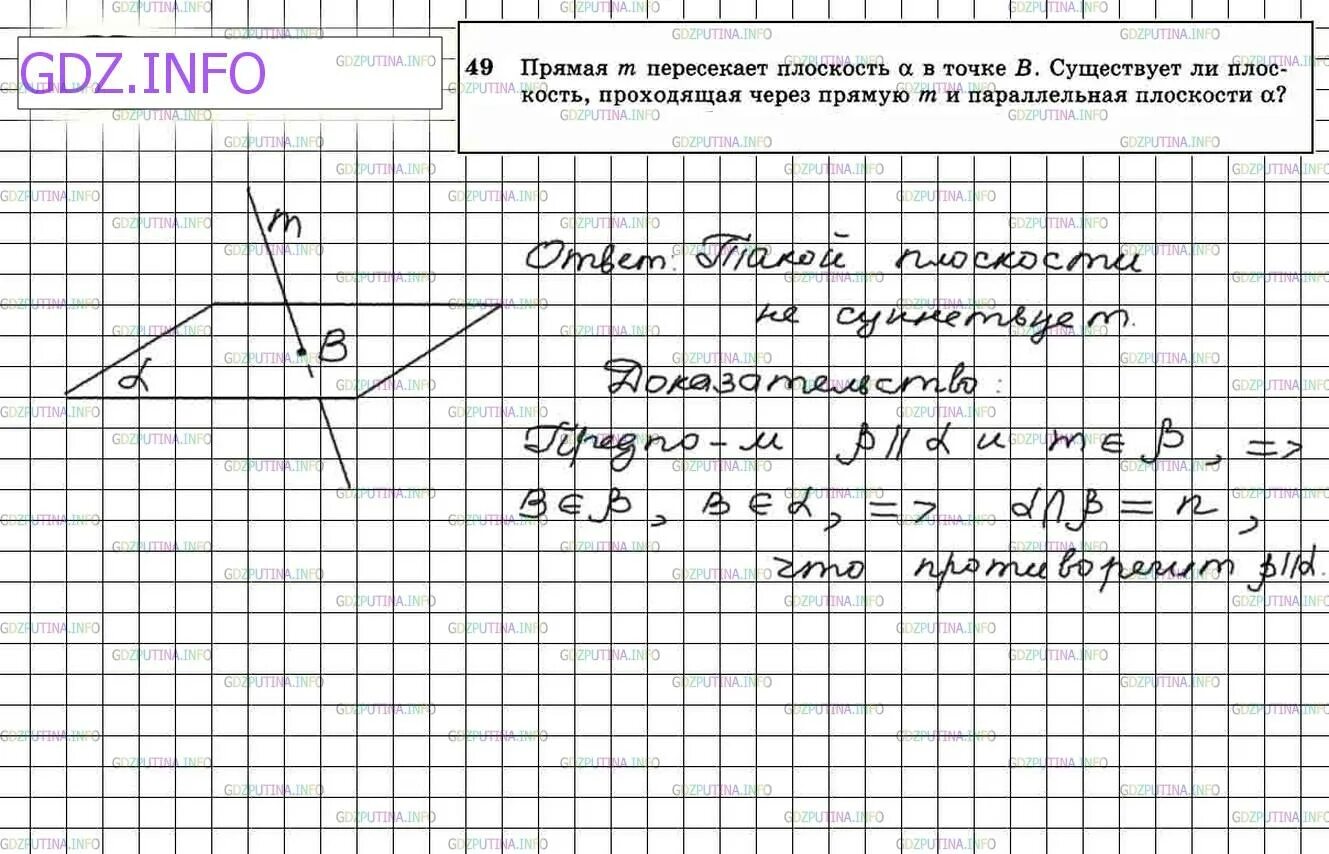 GDZ.INFO
49 Прямая m пересекает плоскость α в точке B. Существует ли плос-
кость, проходящая через прямую m и параллельная плоскости α?
m
B
α
Ответ. Такой плоскости
не существует.
Доказательство:
Предпо-м β || α и m ∈ β, =>
B ∈ β, B ∈ α, => α∩β = n,
что противоречит β||α.
GDZPUTINA.INFO